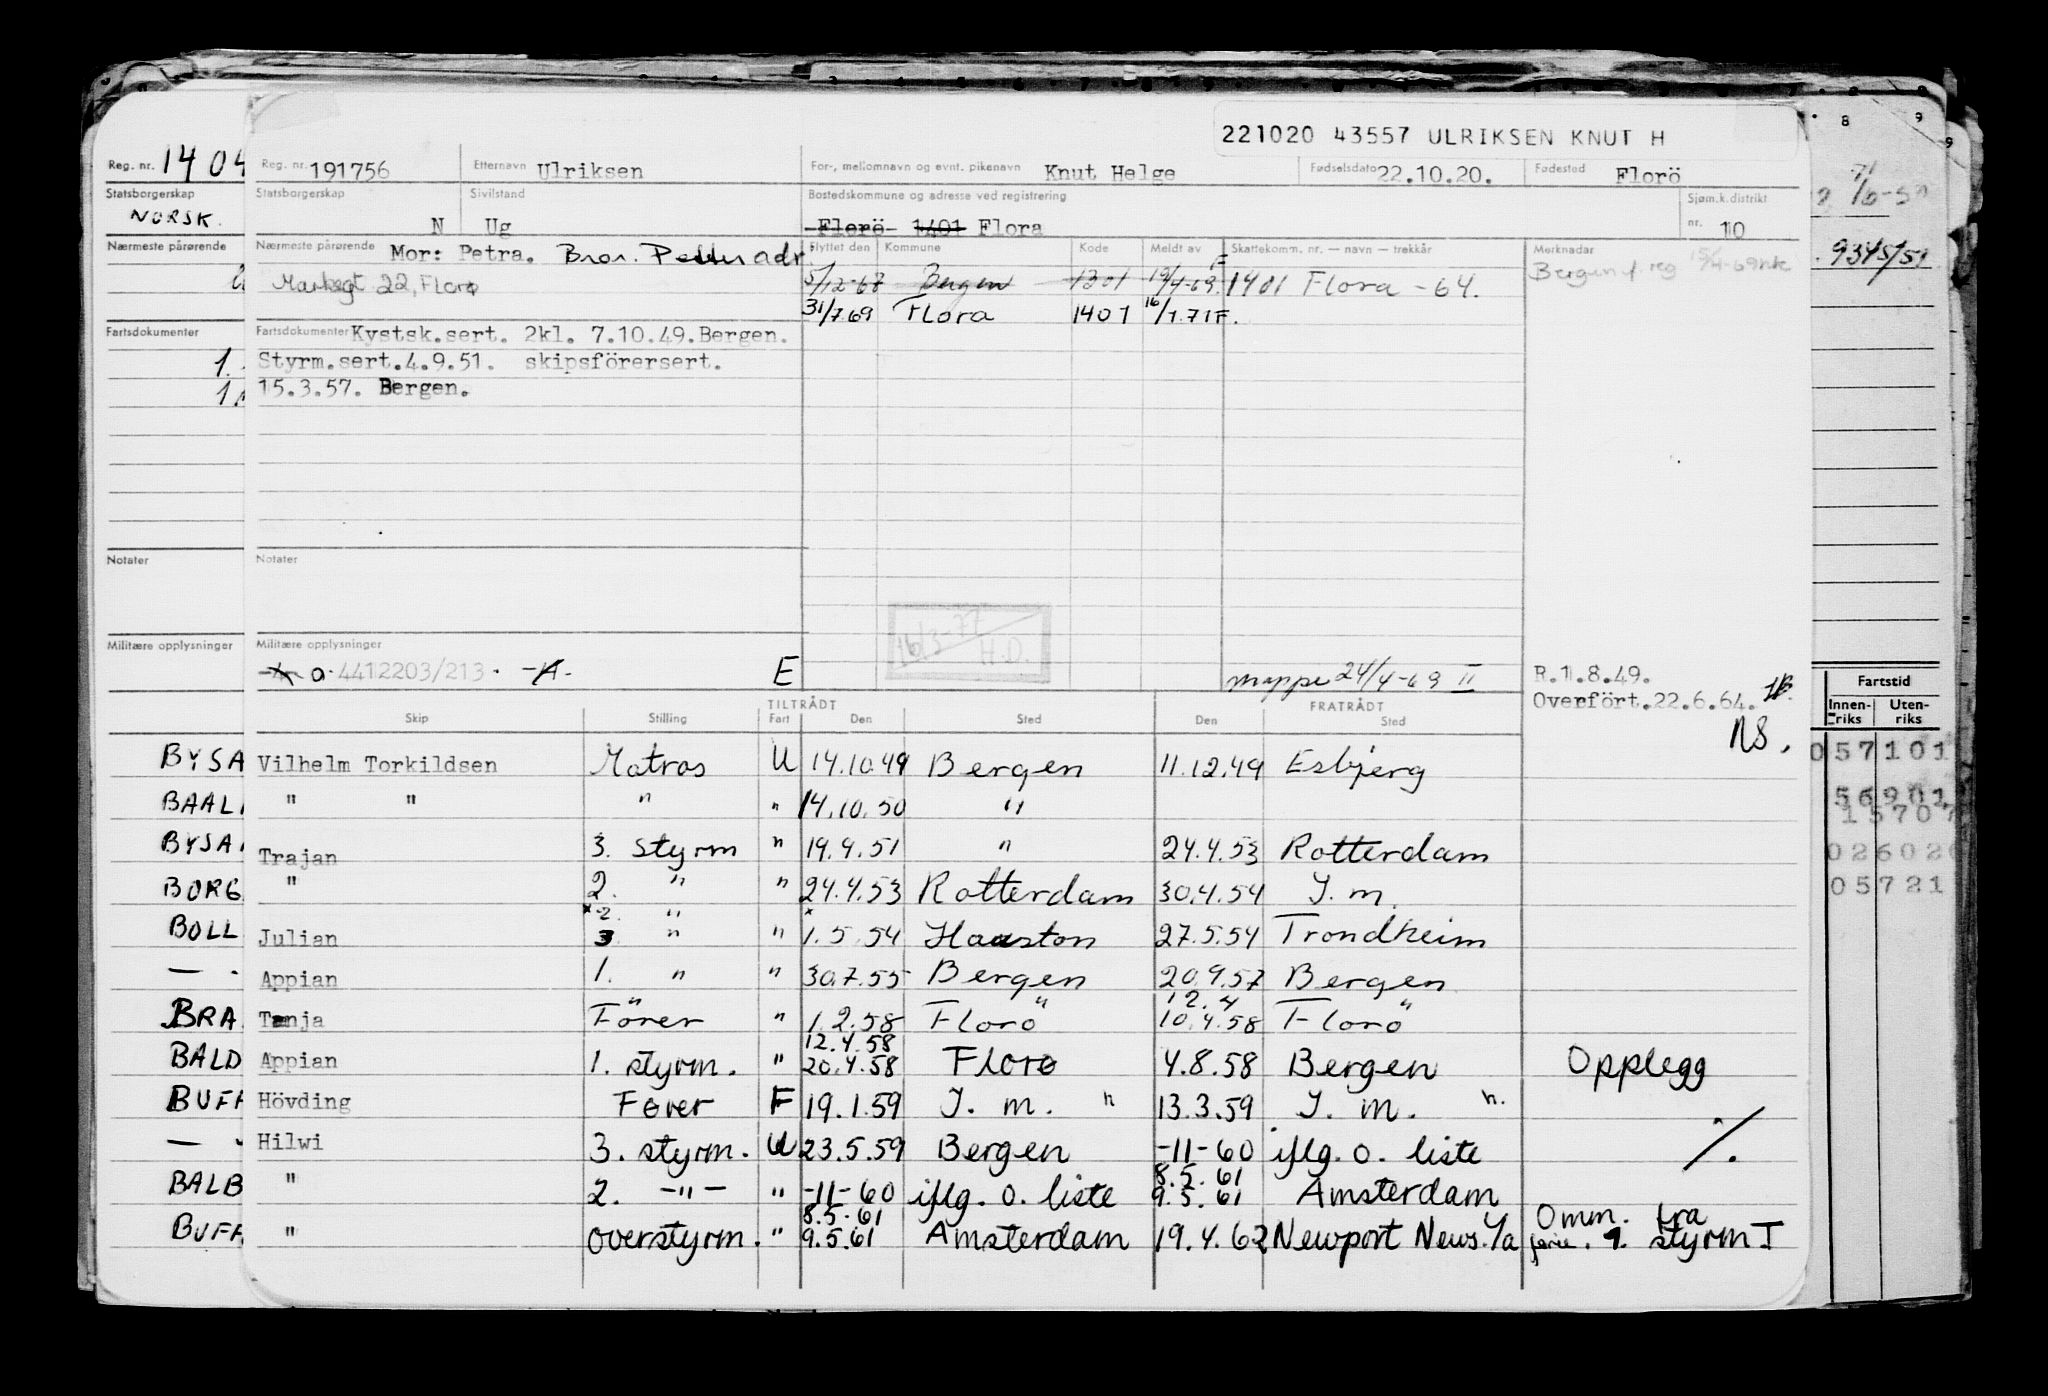 221020 43557 ULRIKSEN KNUT H
Reg. nr. 1404
Reg. nr. 191756 Etternavn Ulriksen For-, mellomnavn og evnt. pikenavn Knut Helge Fødselsdato 22.10.20. Fødested Florö
Statsborgerskap NORSK.
Statsborgerskap N Sivilstand Ug Bostedskommune og adresse ved registrering Florö 1401 Flora Sjøm.k.distrikt nr. 10
Nærmeste pårørende
Nærmeste pårørende Mor: Petra. Bror. Petter adr. Flyttet den Kommune Kode Meldt av Skattekomm. nr. — navn — trekkår Merknader 9345/51
Markegt 22, Florø 5/12-67 Bergen 1301 19/4-69. F 1401 Flora -64. Bergen f. reg
31/7 69 Flora 1401 16/1.71 F.
Fartsdokumenter
Fartsdokumenter Kystsk.sert. 2kl. 7.10.49.Bergen.
Styrm.sert.4.9.51. skipsförersert.
15.3.57. Bergen.
Notater
Notater
16/3-77 H.D.
Militære opplysninger
Militære opplysninger
o. 4412203/213. -A. E mappe 24/4-69 II R.1.8.49.
Overfört.22.6.64.
NS.
Fartstid
Innen-riks Uten-riks
TILTRÅDT FRATRÅDT
Skip Stilling Fart Den Sted Den Sted
BYSA Vilhelm Torkildsen Matros U 14.10.49 Bergen 11.12.49 Esbjerg 057101
BAAL " " " " 14.10.50 " 56901
15707
BYSA Trajan 3. styrm " 19.4.51 " 24.4.53 Rotterdam 02602
BORG " 2. " " 24.4.53 Rotterdam 30.4.54 J. m. 05721
x 2. " x
BOLL Julian 3 " " 1.5.54 Houston 27.5.54 Trondheim
— Appian 1. " " 30.7.55 Bergen 20.9.57 Bergen
12.4
BRA Tenja Förer " 1.2.58 Florö 10.4.58 Florö
12.4.58
BALD Appian 1. styrm. " 20.4.58 Florø 4.8.58 Bergen Opplegg
BUFF Hövding Fører F 19.1.59 J. m. " 13.3.59 J. m. ".
— Hilwi 3. styrm. U 23.5.59 Bergen -11-60 iflg. o. liste ⁒
8.5.61
BALB " 2. -"- " -11-60 iflg. o. liste 9.5.61 Amsterdam
8.5.61
BUFF " overstyrm. " 9.5.61 Amsterdam 19.4.62 Newport News. Va Omm. fra 1. styrm I